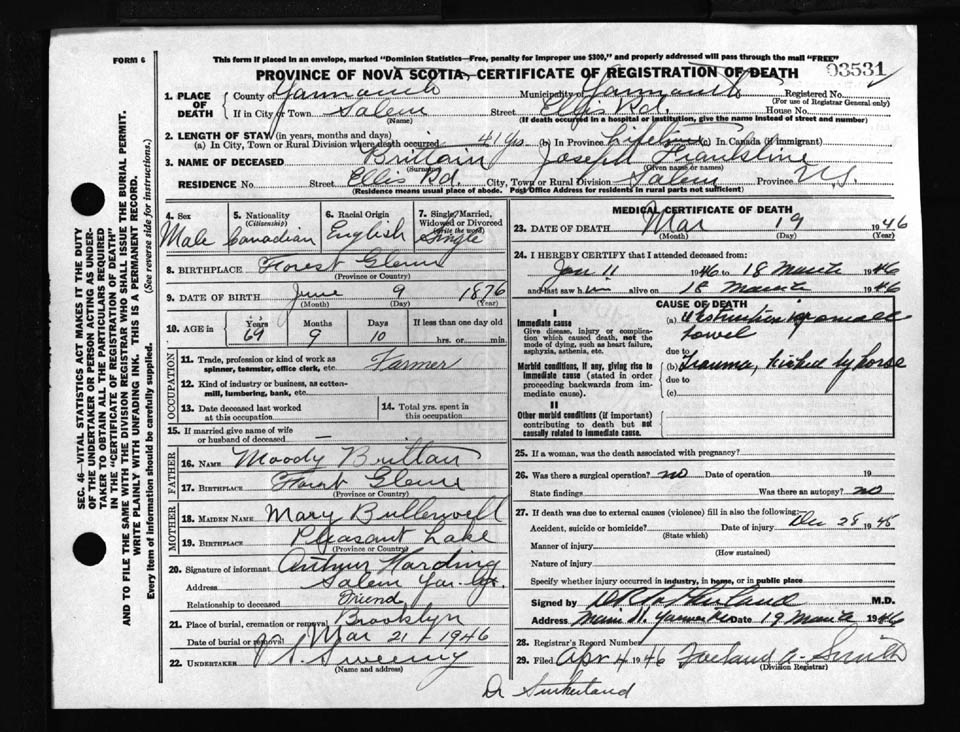 FORM 6
This form if placed in an envelope, marked "Dominion Statistics—Free, penalty for improper use $300," and properly addressed will pass through the mail "FREE"
PROVINCE OF NOVA SCOTIA, CERTIFICATE OF REGISTRATION OF DEATH 03531
1. PLACE OF DEATH County of Yarmouth Municipality of Yarmouth Registered No.
(For use of Registrar General only)
If in City or Town Salem Street Ellis Rd. House No.
(Name) (If death occurred in a hospital or institution, give the name instead of street and number)
2. LENGTH OF STAY (in years, months and days)
(a) In City, Town or Rural Division where death occurred 41 yrs. (b) In Province Lifetime (c) In Canada (if immigrant)
3. NAME OF DECEASED Brittain Joseph Frankline
(Surname) (Given name or names)
RESIDENCE No. Street Ellis Rd. City, Town or Rural Division Salem Province N.S.
(Residence means usual place of abode. Post Office Address for residents in rural parts not sufficient)
4. Sex Male
5. Nationality (Citizenship) Canadian
6. Racial Origin English
7. Single, Married, Widowed or Divorced (Write the word) Single
8. BIRTHPLACE Forest Glenn
(Province or Country)
9. DATE OF BIRTH June 9 1876
(Month) (Day) (Year)
10. AGE in Years 69 Months 9 Days 10 If less than one day old hrs. or min.
OCCUPATION
11. Trade, profession or kind of work as spinner, teamster, office clerk, etc. Farmer
12. Kind of industry or business, as cotton-mill, lumbering, bank, etc.
13. Date deceased last worked at this occupation
14. Total yrs. spent in this occupation
15. If married give name of wife or husband of deceased
FATHER
16. NAME Moody Brittan
17. BIRTHPLACE Forest Glenn
(Province or Country)
MOTHER
18. MAIDEN NAME Mary Bullerwell
19. BIRTHPLACE Pleasant Lake
(Province or Country)
20. Signature of informant Arthur Harding
Address Salem Yar. Co.
Relationship to deceased Friend
21. Place of burial, cremation or removal Brooklyn
Date of burial or removal Mar 21 1946
22. UNDERTAKER V S. Sweeny
MEDICAL CERTIFICATE OF DEATH
23. DATE OF DEATH Mar 19 1946
(Month) (Day) (Year)
24. I HEREBY CERTIFY that I attended deceased from:
Jan 11 1946 to 18 March 1946
and last saw him alive on 18 March 1946
CAUSE OF DEATH
I
Immediate cause
Give disease, injury or complication which caused death, not the mode of dying, such as heart failure, asphyxia, asthenia, etc.
(a) Obstruction of small bowel
due to
Morbid conditions, if any, giving rise to immediate cause (stated in order proceeding backwards from immediate cause).
(b) trauma, kicked by horse
due to
(c)
II
Other morbid conditions (if important) contributing to death but not causally related to immediate cause.
25. If a woman, was the death associated with pregnancy?
26. Was there a surgical operation? no Date of operation 19
State findings Was there an autopsy? no
27. If death was due to external causes (violence) fill in also the following:
Accident, suicide or homicide? Date of injury Dec 28 1945
(State which)
Manner of injury
(How sustained)
Nature of injury
Specify whether injury occurred in industry, in home, or in public place
Signed by D R Sutherland M.D.
Address Main St. Yarmouth Date 19 March 1946
28. Registrar's Record Number
29. Filed Apr 4 1946 Forland A. Smith
(Division Registrar)
Dr Sutherland
SEC. 46—VITAL STATISTICS ACT MAKES IT THE DUTY
OF THE UNDERTAKER OR PERSON ACTING AS UNDER-
TAKER TO OBTAIN ALL THE PARTICULARS REQUIRED
IN THE "CERTIFICATE OF REGISTRATION OF DEATH"
AND TO FILE THE SAME WITH THE DIVISION REGISTRAR WHO SHALL ISSUE THE BURIAL PERMIT.
WRITE PLAINLY WITH UNFADING INK. THIS IS A PERMANENT RECORD.
Every item of information should be carefully supplied. (See reverse side for instructions.)